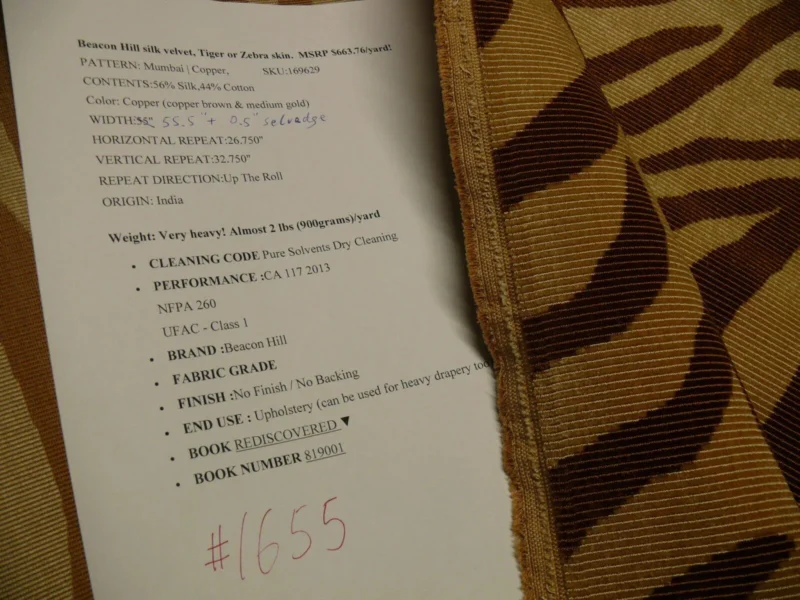 Beacon Hill silk velvet, Tiger or Zebra skin. MSRP $663.76/yard!
PATTERN: Mumbai | Copper, SKU:169629
CONTENTS:56% Silk,44% Cotton
Color: Copper (copper brown & medium gold)
WIDTH 55.5" + 0.5" selvadge
HORIZONTAL REPEAT:26.750"
VERTICAL REPEAT:32.750"
REPEAT DIRECTION:Up The Roll
ORIGIN: India
Weight: Very heavy! Almost 2 lbs (900grams)/yard
• CLEANING CODE Pure Solvents Dry Cleaning
• PERFORMANCE :CA 117 2013
NFPA 260
UFAC - Class 1
• BRAND :Beacon Hill
• FABRIC GRADE
• FINISH :No Finish / No Backing
• END USE : Upholstery (can be used for heavy drapery too
• BOOK REDISCOVERED ▼
• BOOK NUMBER 819001
#1655